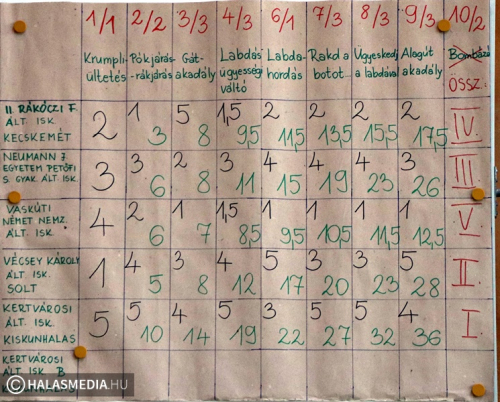 1/1 2/2 3/3 4/3 6/1 7/3 8/3 9/3 10/2
Krumpli- Pókjárás- Gát- Labdás Labda- Rakd a Ügyeskedj Alagút Bombázó
ültetés -rákjárás akadály ügyességi hordás botot... a labdával akadály ÖSSZ.:
váltó
II. RÁKÓCZI F.
ÁLT. ISK.
KECSKEMÉT
2 1 3 5 8 1,5 9,5 2 11,5 2 13,5 2 15,5 2 17,5 IV.
NEUMANN J.
EGYETEM PETŐFI
S. GYAK. ÁLT. ISK.
3 3 6 2 8 3 11 4 15 4 19 4 23 3 26 III.
VASKÚTI
NÉMET NEMZ.
ÁLT. ISK.
4 2 6 1 7 1,5 8,5 1 9,5 1 10,5 1 11,5 1 12,5 V.
VÉCSEY KÁROLY
ÁLT. ISK.
SOLT
1 4 5 3 8 4 12 5 17 3 20 3 23 5 28 II.
KERTVÁROSI
ÁLT. ISK.
KISKUNHALAS
5 5 10 4 14 5 19 3 22 5 27 5 32 4 36 I.
KERTVÁROSI
ÁLT. ISK. B
© HALASMEDIA.HU